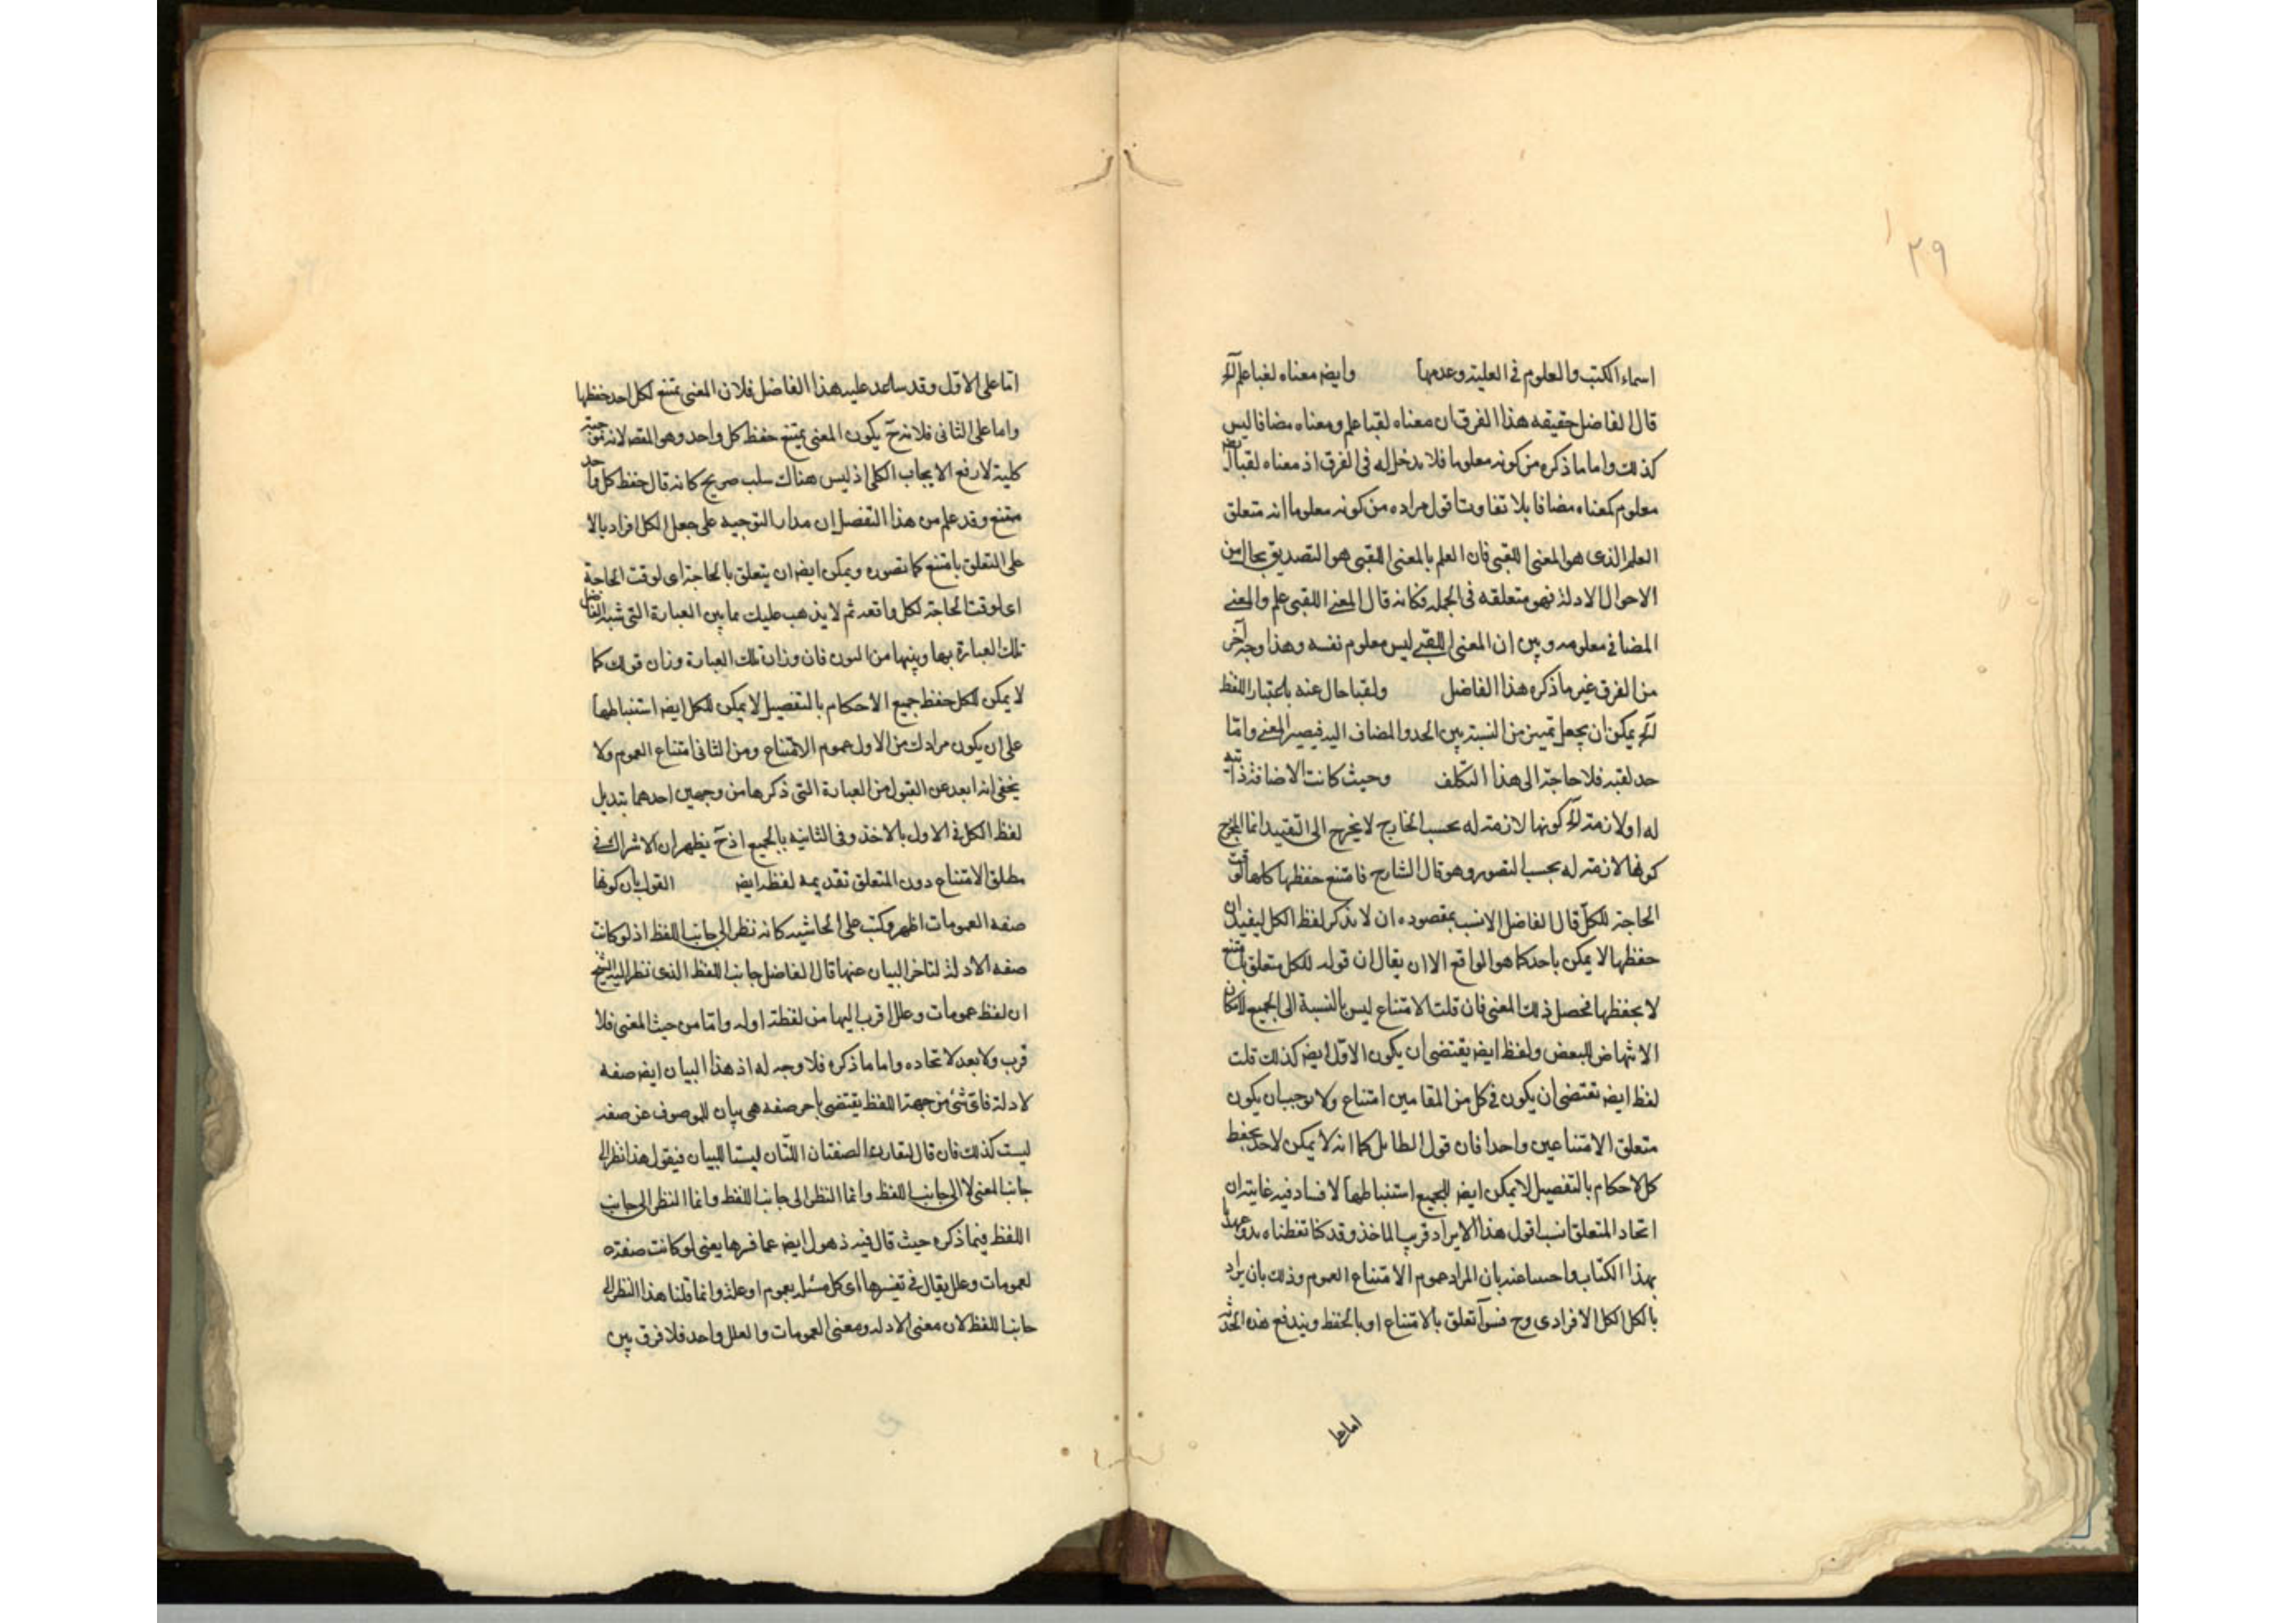 ٢٩
اسماء الكتب والعلوم فى العلمية وعدمها وايضہ معناه لقبا علم آلخ
قال الفاضل حقيقه هذا الفرق ان معناه لقبا علم ومعناه مضافا ليس
كذلك واما ما ذكره من كونه معلوما فلا مدخل له فى الفرق اذ معناه لقبا ايضہ
معلوم كمعناه مضافا بلا تفاوت اقول مراده من كونه معلوما انه متعلق
العلم الذى هو المعنى اللقبى فان العلم بالمعنى اللقبى هو التصديق بحال من
الاحوال الادلة فهى متعلقه فى الجمله فكانه قال المعنى اللقبى علم والمعنى
المضافى معلومه وبين ان المعنى اللقبى ليس معلوم نفسه وهذا وجه آخر
من الفرق غير ما ذكره هذا الفاضل ولقبا حال عنه باعتبار اللفظ
آلخ يمكن ان يجعل تميزا من النسبة بين الحد والمضاف اليه فيصير المعنى واما
حد لقبه فلا حاجة الى هذا التكلف وحيث كانت الاضافة ذاتيه
له او لازمة آلخ كونها لازمة له بحسب الخارج لا يخرج الى التقييد انما المخرج
كونها لازمة له بحسب التصور وهو قال الشارح فامتنع حفظها كلها لوقت
الحاجة للكل قال الفاضل الانسب بمقصوده ان لا يذكر لفظ الكل ليفيد ان
حفظها لا يمكن باحد كما هو الواقع الا ان يقال ان قوله للكل متعلق بامتنع
لا بحفظها فحصل ذلك المعنى فان قلت الامتناع ليس بالنسبة الى الجميع لامكان
الانتهاض للبعض ولفظ ايضہ يقتضى ان يكون الاول ايضہ كذلك قلت
لفظ ايضہ تقتضى ان يكون فى كل من المقامين امتناع ولا يوجب ان يكون
متعلق الامتناعين واحدا فان قول القائل كما انه لا يمكن لاحد حفظ
كل الاحكام بالتفصيل لا يمكن ايضہ للجميع استنباطها لا فساد فيه غايته ان
اتحاد المتعلق انسب اقول هذا الايراد قريب الماخذ وقد كنا تفطناه بدو عهدنا
بهذا الكتاب واجبنا عنه بان المراد عموم الامتناع العموم وذلك بان يراد
بالكل الكل الافرادى وح فسواء تعلق بالامتناع او بالحفظ ويندفع هذه الخدشه
اما على
اما على الاول وقد ساعد عليه هذا الفاضل فلان المعنى يمتنع لكل احد حفظها
واما على الثانى فلانه ح يكون المعنى يمتنع حفظ كل واحد وهو المقصہ لانه موجبة
كلية لا رفع الايجاب الكلى اذ ليس هناك سلب صريح كانه قال حفظ كل واحد
ممتنع وقد علم من هذا التفصيل ان مدار التوجيه على جعل الكل افراديا لا
على التعلق بامتنع كما تصوره ويمكن ايضہ ان يتعلق بالحاجة اى لوقت الحاجة
اى لوقت الحاجة لكل واقعه ثم لا يذهب عليك ما بين العبارة التى شبه الفاضل
تلك العبارة بها وبينها من البون فان وزان تلك العبارة وزان قولك كما
لا يمكن للكل حفظ جميع الاحكام بالتفصيل لا يمكن للكل ايضہ استنباطها
على ان يكون مرادك من الاول عموم الامتناع ومن الثانى امتناع العموم ولا
يخفى انه ابعد عن القبول من العبارة التى ذكرها من وجهين احدهما تبديل
لفظ الكل فى الاول بالاخذ وفى الثانيه بالجميع اذ ح يظهر ان الاشراك فى
مطلق الامتناع دون المتعلق تقديمه لفظ ايضہ القول بان كونها
صفه العمومات اظهر وكتب على الحاشيه كانه نظر الى جانب اللفظ اذ لو كانت
صفه الادلة لتاخر البيان عنها قال الفاضل جانب اللفظ الذى نظر اليه الشيخ
ان لفظ عمومات وعلل اقرب اليها من لفظة اوله واما من حيث المعنى فلا
قرب ولا بعد لاتحاده واما ما ذكره فلا وجه له اذ هذا البيان ايضہ صفه
لادلة فاى شئ من جهة اللفظ يقتضى باحر صفه هى بيان للموصوف عن صفه
ليست كذلك فان قال لتقارن الصفتان اللتان ليستا للبيان فيقول هذا نظر الى
جانب المعنى لا الى جانب اللفظ وانما النظر الى جانب اللفظ وانما النظر الى جانب
اللفظ فيما ذكره حيث قال فيه ذهول ايضہ عما فسرها يعنى لو كانت صفة
لعمومات وعلل يقال فى تفسيرها اى كل مسئله بعموم او علة وانما قلنا هذا النظر الى
جانب اللفظ لان معنى الادله ومعنى العمومات والعلل واحد فلا فرق بين